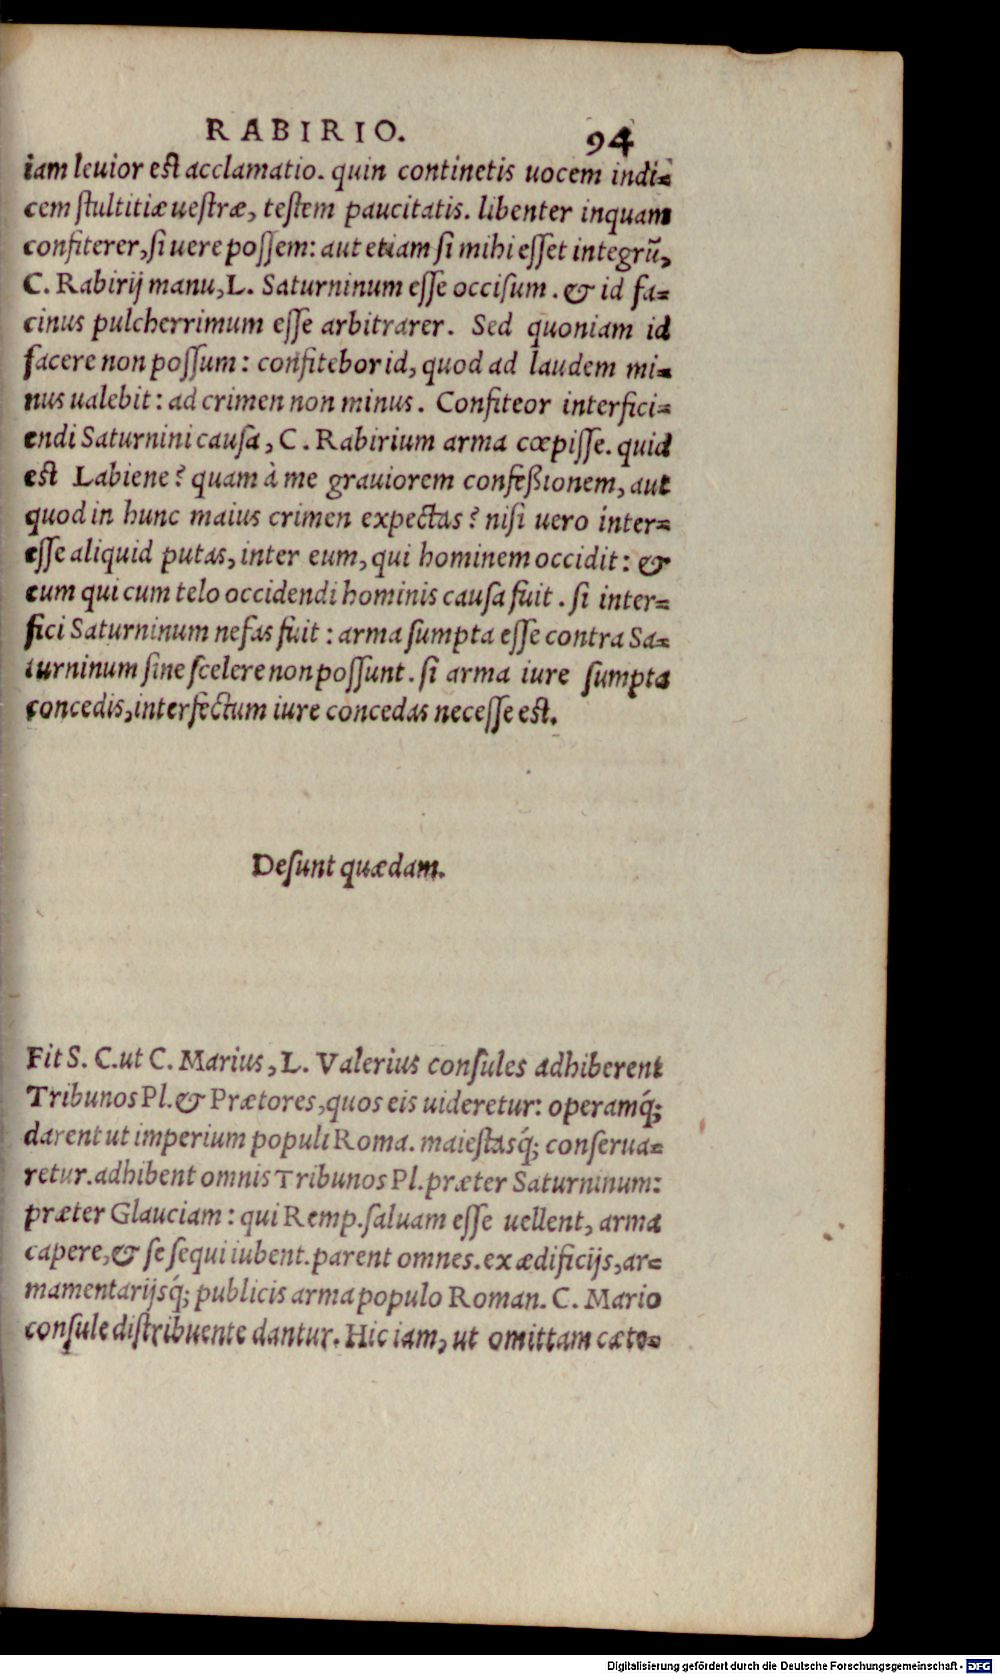 RABIRIO. 94
iam leuior est acclamatio. quin continetis uocem indi-
cem ſtultitiæ ueſtræ, teſtem paucitatis. libenter inquam
confiterer, ſi uere poſſem: aut etiam ſi mihi eſſet integrũ,
C. Rabirij manu, L. Saturninum eſſe occiſum. & id fa-
cinus pulcherrimum eſſe arbitrarer. Sed quoniam id
facere non poſſum: confitebor id, quod ad laudem mi-
nus ualebit: ad crimen non minus. Confiteor interfici-
endi Saturnini cauſa, C. Rabirium arma cœpiſſe. quid
est Labiene? quam à me grauiorem confeßionem, aut
quod in hunc maius crimen expectas? niſi uero inter-
eſſe aliquid putas, inter eum, qui hominem occidit: &
eum qui cum telo occidendi hominis cauſa fuit. ſi inter-
fici Saturninum nefas fuit: arma ſumpta eſſe contra Sa-
turninum ſine ſcelere non poſſunt. ſi arma iure ſumpta
concedis, interfectum iure concedas neceſſe est.
Deſunt quædam.
Fit S. C. ut C. Marius, L. Valerius conſules adhiberent
Tribunos Pl. & Prætores, quos eis uideretur: operamq́;
darent ut imperium populi Roma. maieſtasq́; conſerua-
retur. adhibent omnis Tribunos Pl. præter Saturninum:
præter Glauciam: qui Remp. ſaluam eſſe uellent, arma
capere, & ſe ſequi iubent. parent omnes. ex ædificijs, ar-
mamentarijsq́; publicis arma populo Roman. C. Mario
conſule diſtribuente dantur. Hic iam, ut omittam cæte-
Digitalisierung gefördert durch die Deutsche Forschungsgemeinschaft - DFG